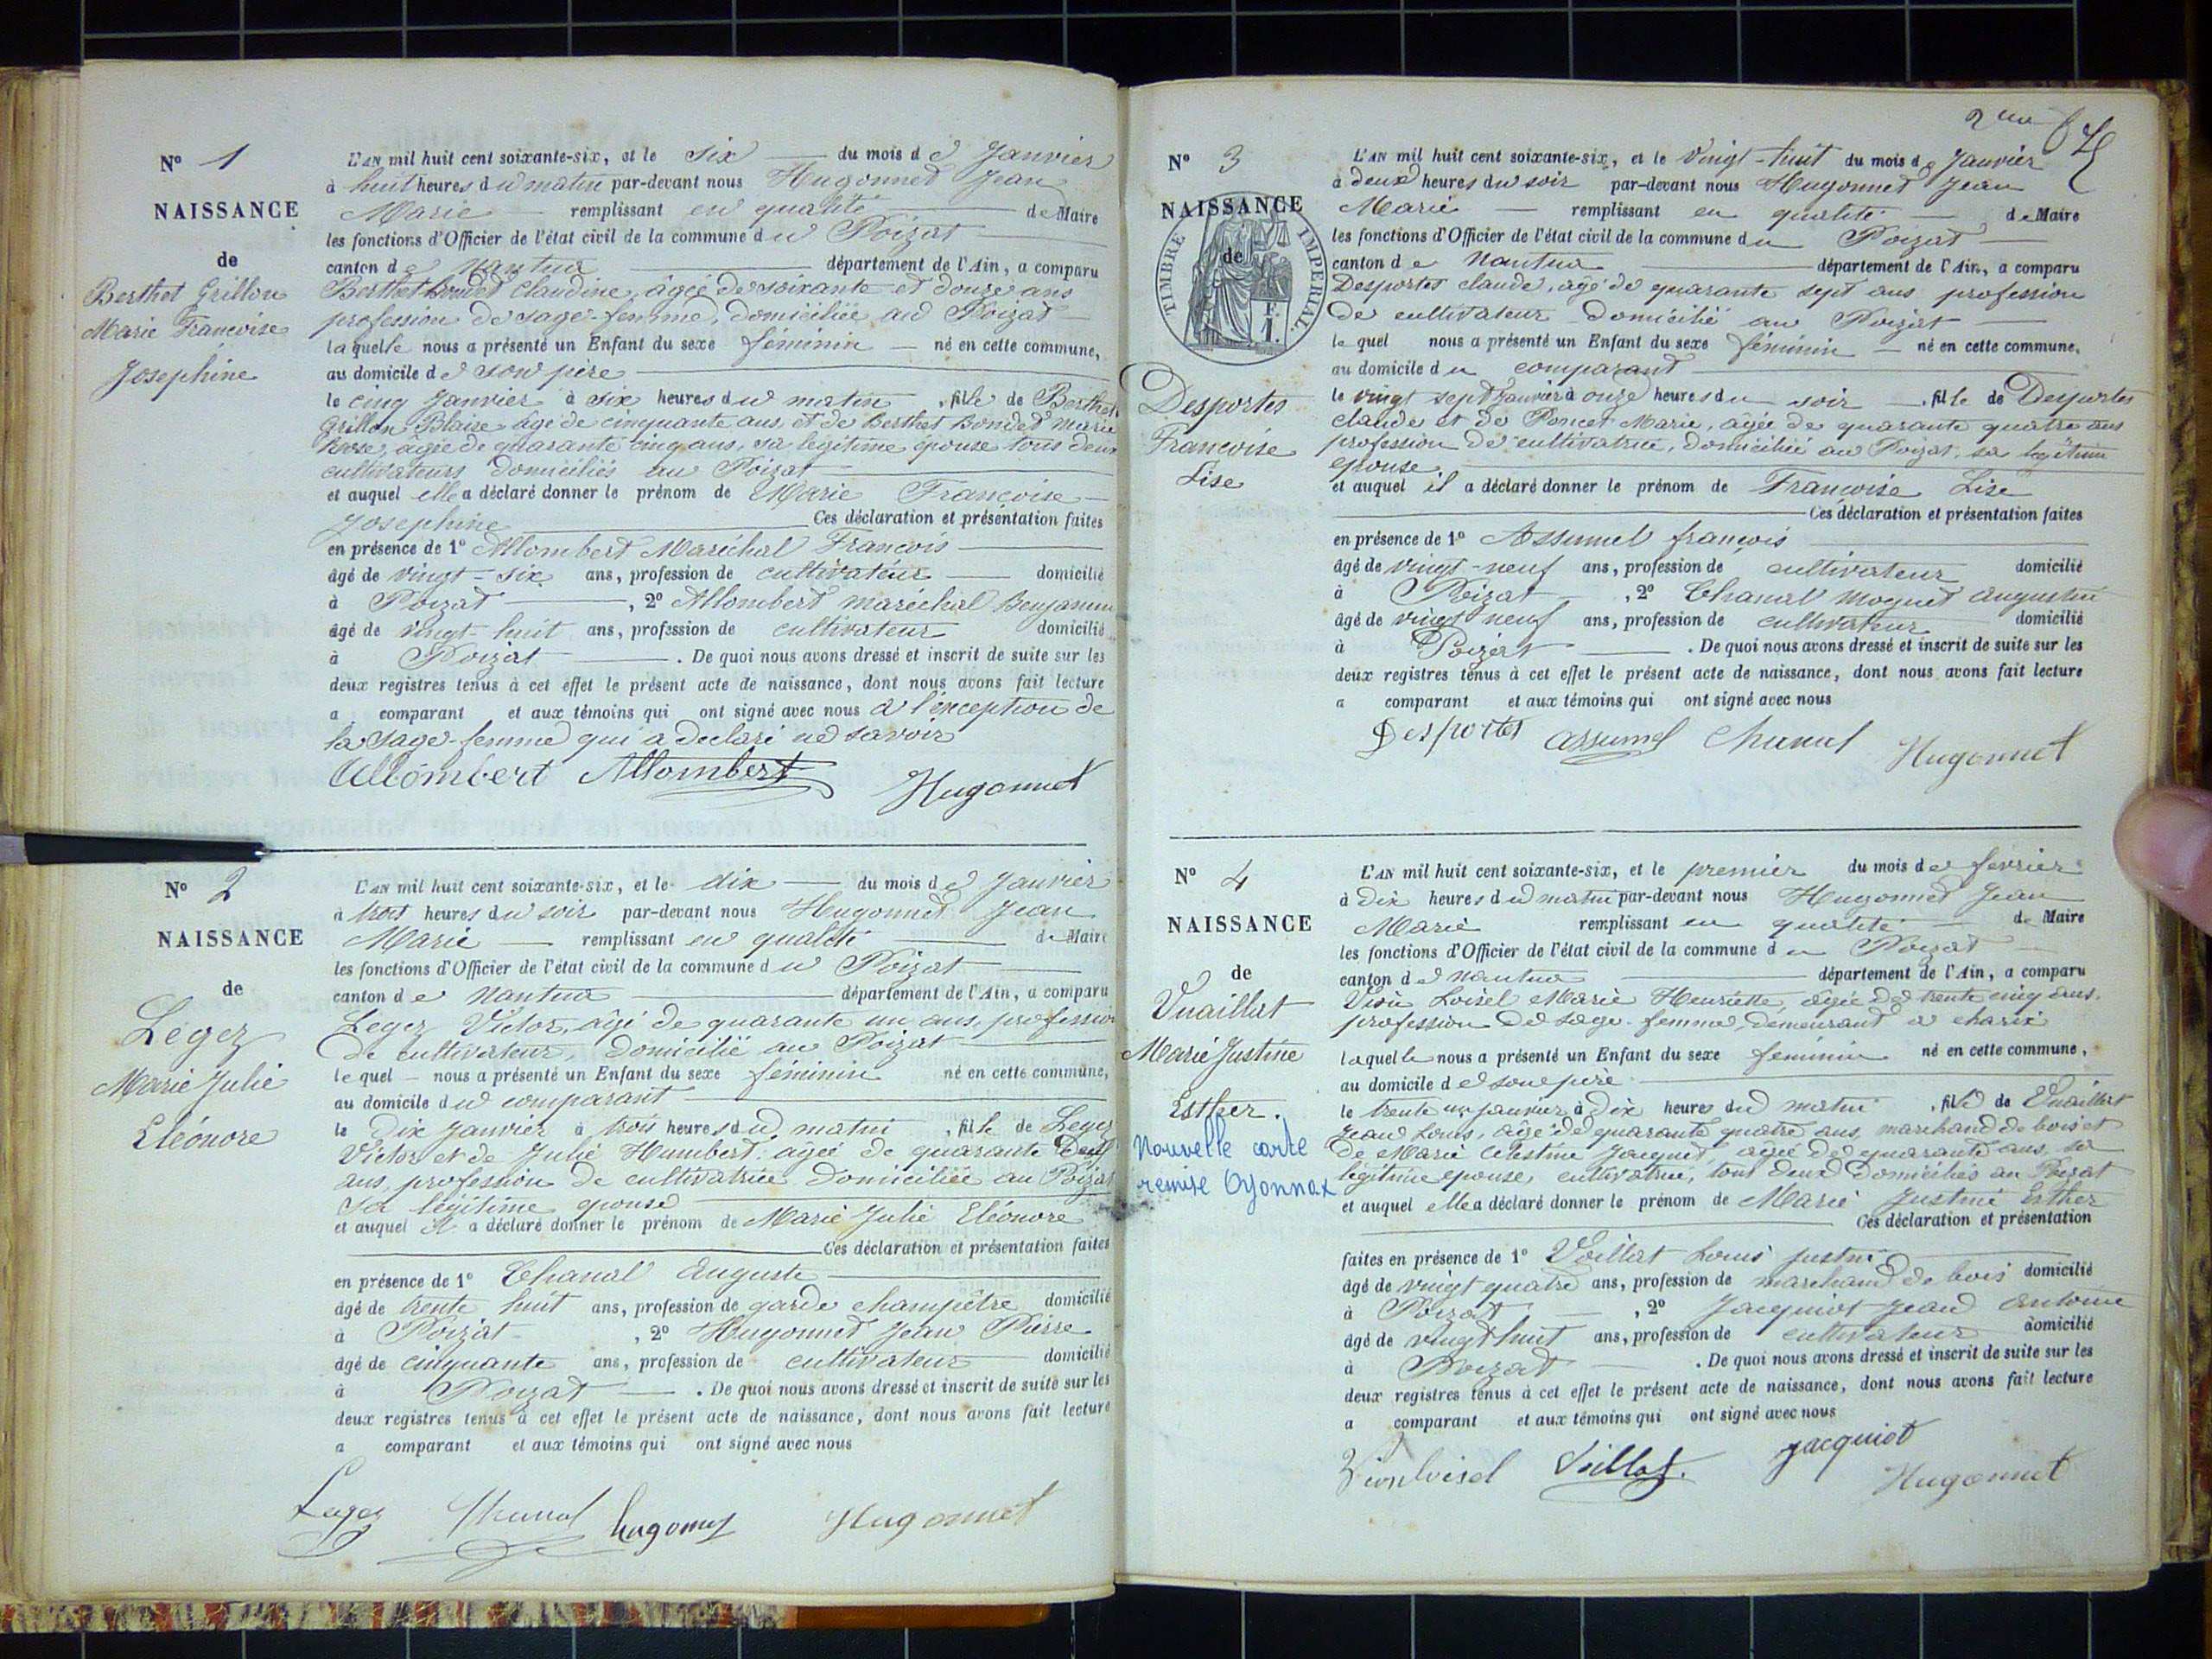 N° 1
NAISSANCE
de
Berthet Grillon
Marie Françoise
Josephine
L'AN mil huit cent soixante-six, et le six du mois de Janvier
à huit heures du matin par-devant nous Hugonnet Jean
Marie remplissant en qualité de Maire
les fonctions d'Officier de l'état civil de la commune du Poizat
canton de Nantua département de l'Ain, a comparu
Berthet Bondet Claudine, âgée de soixante et douze ans
profession de sage-femme, domiciliée au Poizat
laquelle nous a présenté un Enfant du sexe féminin né en cette commune,
au domicile de son père
le cinq Janvier à six heures du matin, fille de Berthet
Grillon Blaise âgé de cinquante ans, et de Berthet Bondet Marie
Rose, âgée de quarante cinq ans, sa légitime épouse tous deux
cultivateurs domiciliés au Poizat
et auquel elle a déclaré donner le prénom de Marie Françoise
Josephine Ces déclaration et présentation faites
en présence de 1° Allombert Maréchal François
âgé de vingt-six ans, profession de cultivateur domicilié
à Poizat, 2° Allombert maréchal Benjamin
âgé de vingt-huit ans, profession de cultivateur domicilié
à Poizat. De quoi nous avons dressé et inscrit de suite sur les
deux registres tenus à cet effet le présent acte de naissance, dont nous avons fait lecture
a comparant et aux témoins qui ont signé avec nous à l'exception de
la sage-femme qui a déclaré ne savoir
Allombert Allombert Hugonnet
N° 2
NAISSANCE
de
Leger
Marie Julie
Eléonore
L'AN mil huit cent soixante-six, et le dix du mois de Janvier
à trois heures du soir par-devant nous Hugonnet Jean
Marie remplissant en qualité de Maire
les fonctions d'Officier de l'état civil de la commune du Poizat
canton de Nantua département de l'Ain, a comparu
Leger Victor, âgé de quarante un ans, profession
de cultivateur, domicilié au Poizat
lequel nous a présenté un Enfant du sexe féminin né en cette commune,
au domicile du comparant
le Dix Janvier à trois heures du matin, fille de Leger
Victor et de Julie Humbert âgée de quarante
ans, profession de cultivatrice domiciliée au Poizat
sa légitime épouse
et auquel il a déclaré donner le prénom de Marie Julie Eléonore
Ces déclaration et présentation faites
en présence de 1° Chanal Auguste
âgé de trente huit ans, profession de garde champêtre domicilié
à Poizat, 2° Hugonnet Jean Pierre
âgé de cinquante ans, profession de cultivateur domicilié
à Poizat. De quoi nous avons dressé et inscrit de suite sur les
deux registres tenus à cet effet le présent acte de naissance, dont nous avons fait lecture
a comparant et aux témoins qui ont signé avec nous
Leger Chanal Hugonnet
N° 3
NAISSANCE
de
TIMBRE IMPERIAL.
Desportes
Françoise
Lise
L'AN mil huit cent soixante-six, et le Vingt-huit du mois de Janvier
à deux heures du soir par-devant nous Hugonnet Jean
Marie remplissant en qualité de Maire
les fonctions d'Officier de l'état civil de la commune du Poizat
canton de Nantua département de l'Ain, a comparu
Desportes claude, âgé de quarante sept ans profession
de cultivateur domicilié au Poizat
lequel nous a présenté un Enfant du sexe féminin né en cette commune,
au domicile du comparant
le vingt sept Janvier à onze heures du soir, fille de Desportes
claude et de Poncet Marie, âgée de quarante quatre ans
profession de cultivatrice, domiciliée au Poizat, sa légitime
épouse
et auquel il a déclaré donner le prénom de Françoise Lise
Ces déclaration et présentation faites
en présence de 1° Assumel françois
âgé de vingt-neuf ans, profession de cultivateur domicilié
à Poizat, 2° Chanal Moquet augustin
âgé de vingt neuf ans, profession de cultivateur domicilié
à Poizat. De quoi nous avons dressé et inscrit de suite sur les
deux registres tenus à cet effet le présent acte de naissance, dont nous avons fait lecture
a comparant et aux témoins qui ont signé avec nous
Desportes assumel Chanal Hugonnet
N° 4
NAISSANCE
de
Vuaillat
Marie Justine
Esther.
Nouvelle carte
remise Oyonnax
L'AN mil huit cent soixante-six, et le premier du mois de février
à Dix heures du matin par-devant nous Hugonnet Jean
Marie remplissant en qualité de Maire
les fonctions d'Officier de l'état civil de la commune du Poizat
canton de Nantua département de l'Ain, a comparu
Vion Loisel Marie Henriette âgée de trente cinq ans,
profession de sage-femme, demeurant à charix
laquelle nous a présenté un Enfant du sexe féminin né en cette commune,
au domicile de son père
le trente un janvier à Dix heures du matin, fille de Vuaillat
Jean Louis, âgé de quarante quatre ans, marchand de bois et
de Marie Célestine Jacquiot, âgée de quarante ans, sa
légitime épouse, cultivatrice, tous deux domiciliés au Poizat
et auquel elle a déclaré donner le prénom de Marie Justine Esther
Ces déclaration et présentation
faites en présence de 1° Voillat Louis justin
âgé de vingt quatre ans, profession de marchand de bois domicilié
à Poizat, 2° Jacquiot Jean Antoine
âgé de vingt huit ans, profession de cultivateur domicilié
à Poizat. De quoi nous avons dressé et inscrit de suite sur les
deux registres tenus à cet effet le présent acte de naissance, dont nous avons fait lecture
a comparant et aux témoins qui ont signé avec nous
Vion Loisel Voillat. Jacquiot Hugonnet